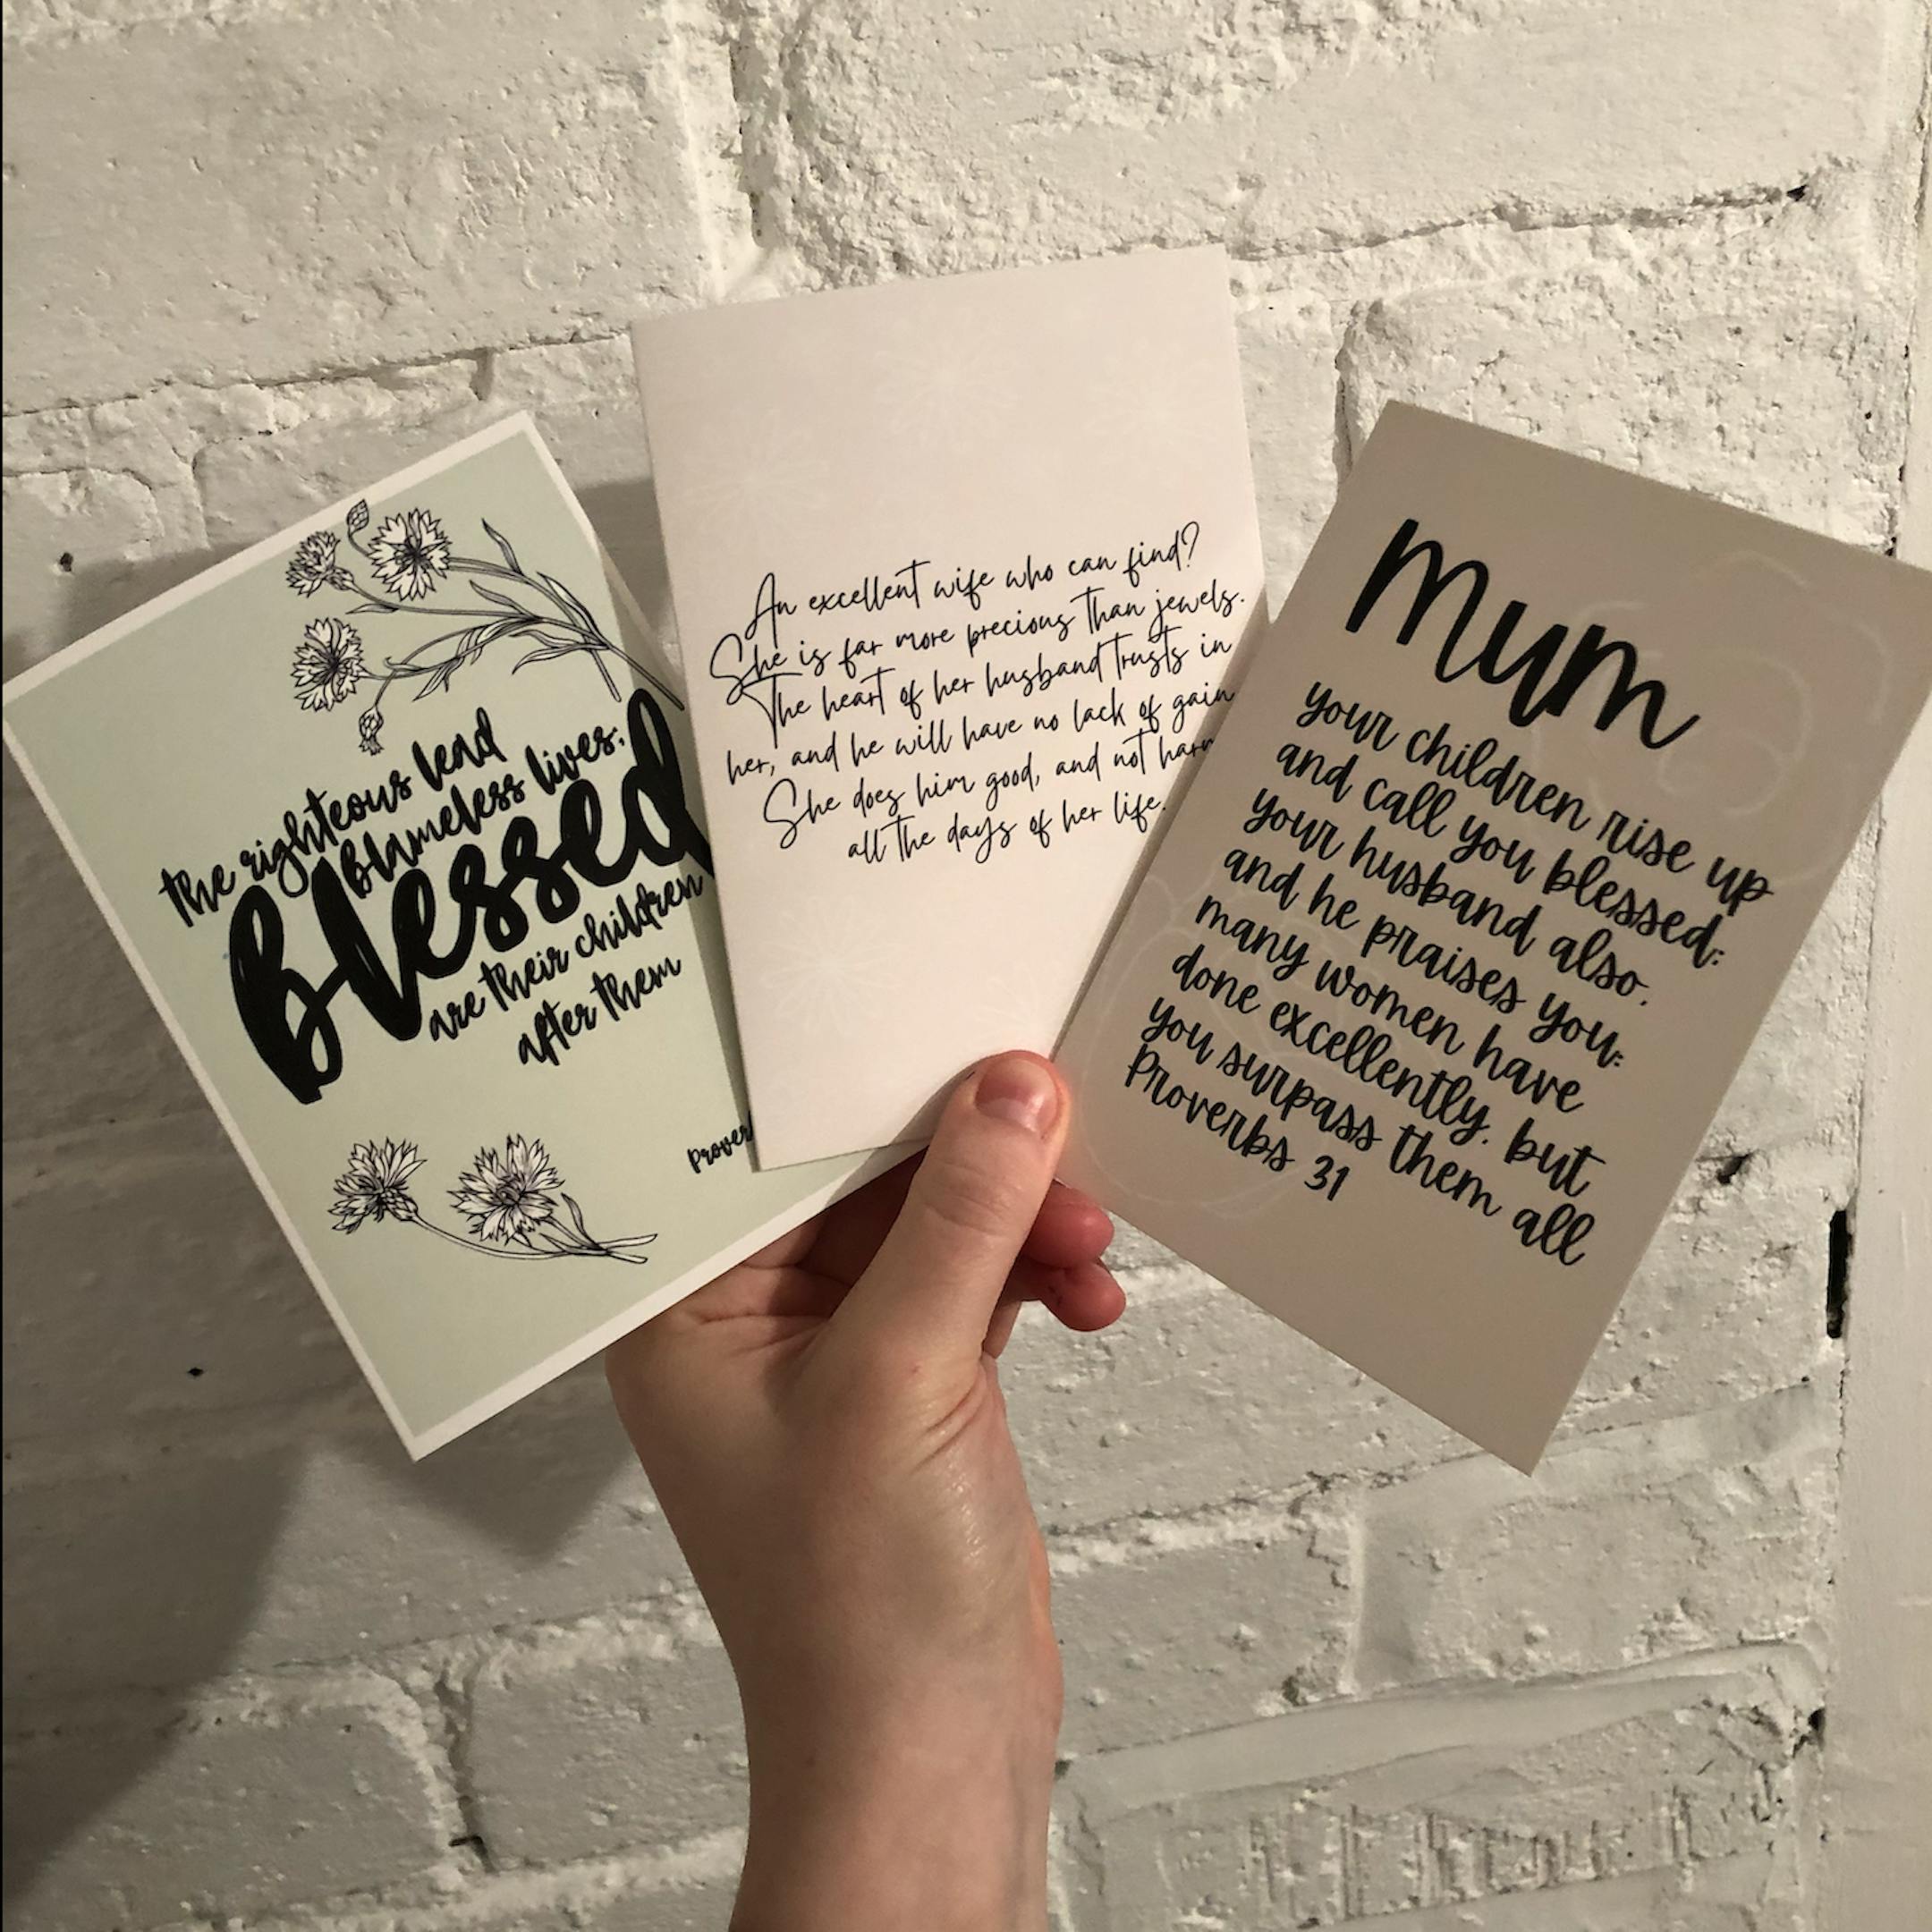 the righteous lead
blameless lives.
Blessed
are their children
after them
An excellent wife who can find?
She is far more precious than jewels.
The heart of her husband trusts in
her, and he will have no lack of gain
She does him good, and not harm
all the days of her life.
Mum
your children rise up
and call you blessed:
your husband also.
and he praises you:
many women have
done excellently. but
you surpass them all
Proverbs 31